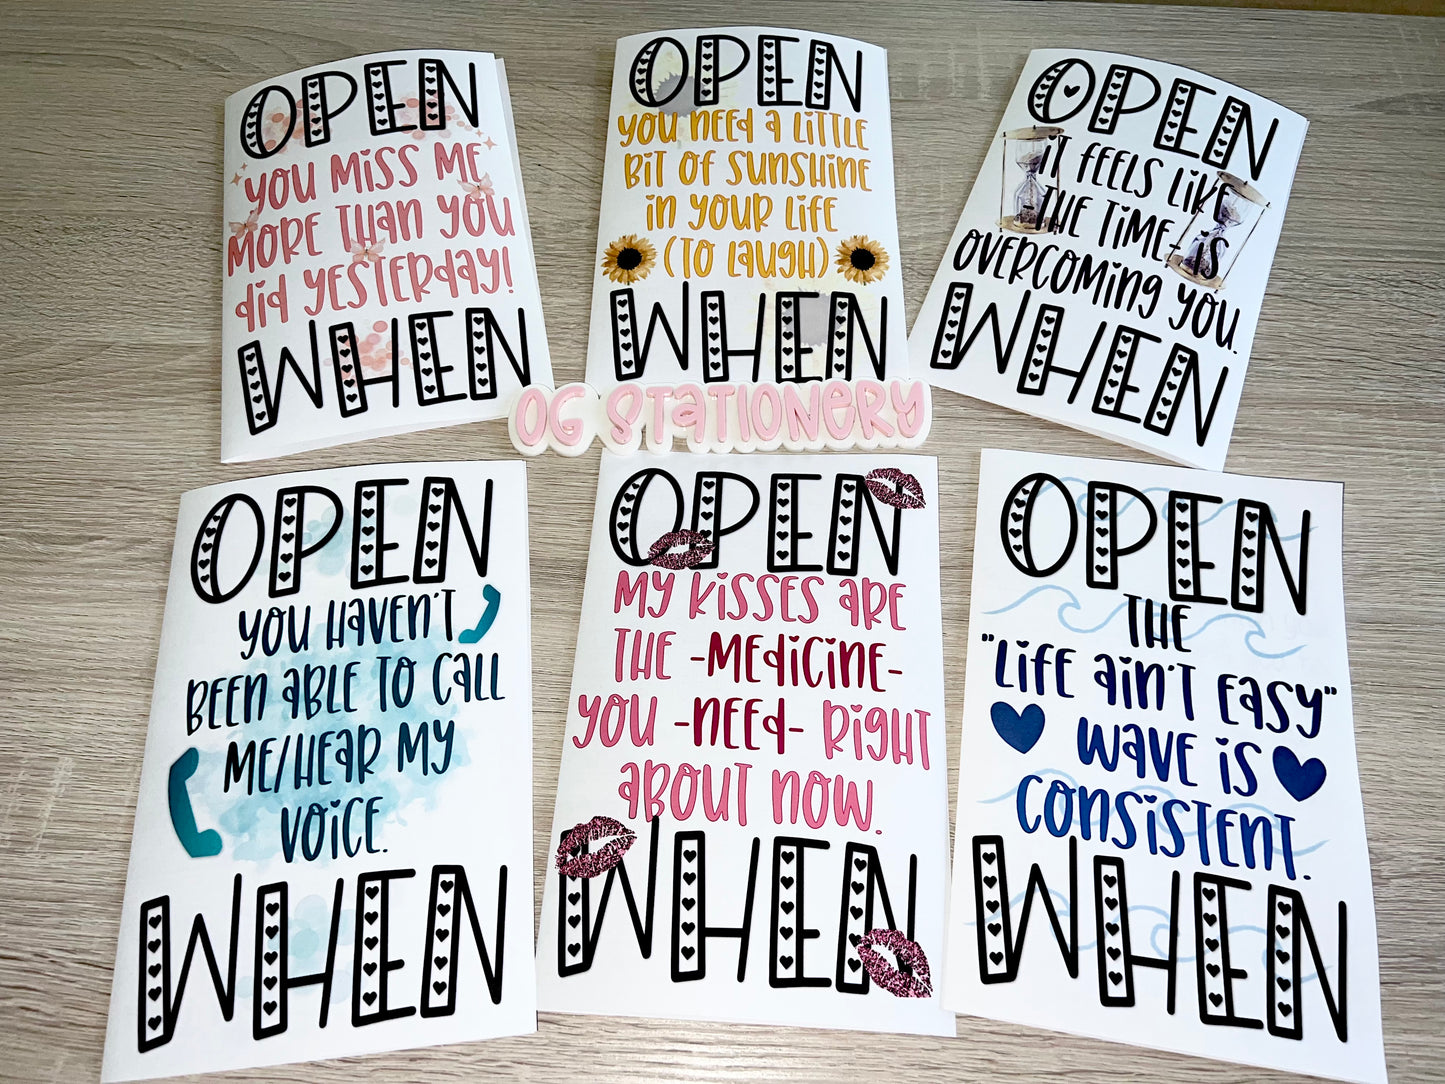 OPEN
YOU MISS ME
MORE THAN YOU
did YESTERDAY!
WHEN
OPEN
YOU NEED A LITTLE
BIT OF SUNSHINE
IN YOUR LIFE
(TO LAUGH)
WHEN
OPEN
IT FEELS LIKE
-THE TIME- IS
OVERCOMING YOU.
WHEN
OG STATIONERY
OPEN
YOU HAVEN'T
BEEN ABLE TO CALL
ME/HEAR MY
VOICE.
WHEN
OPEN
MY KISSES ARE
THE -MEDICINE-
YOU -NEED- RIGHT
ABOUT NOW.
WHEN
OPEN
THE
"LIFE AIN'T EASY"
WAVE IS
CONSISTENT.
WHEN